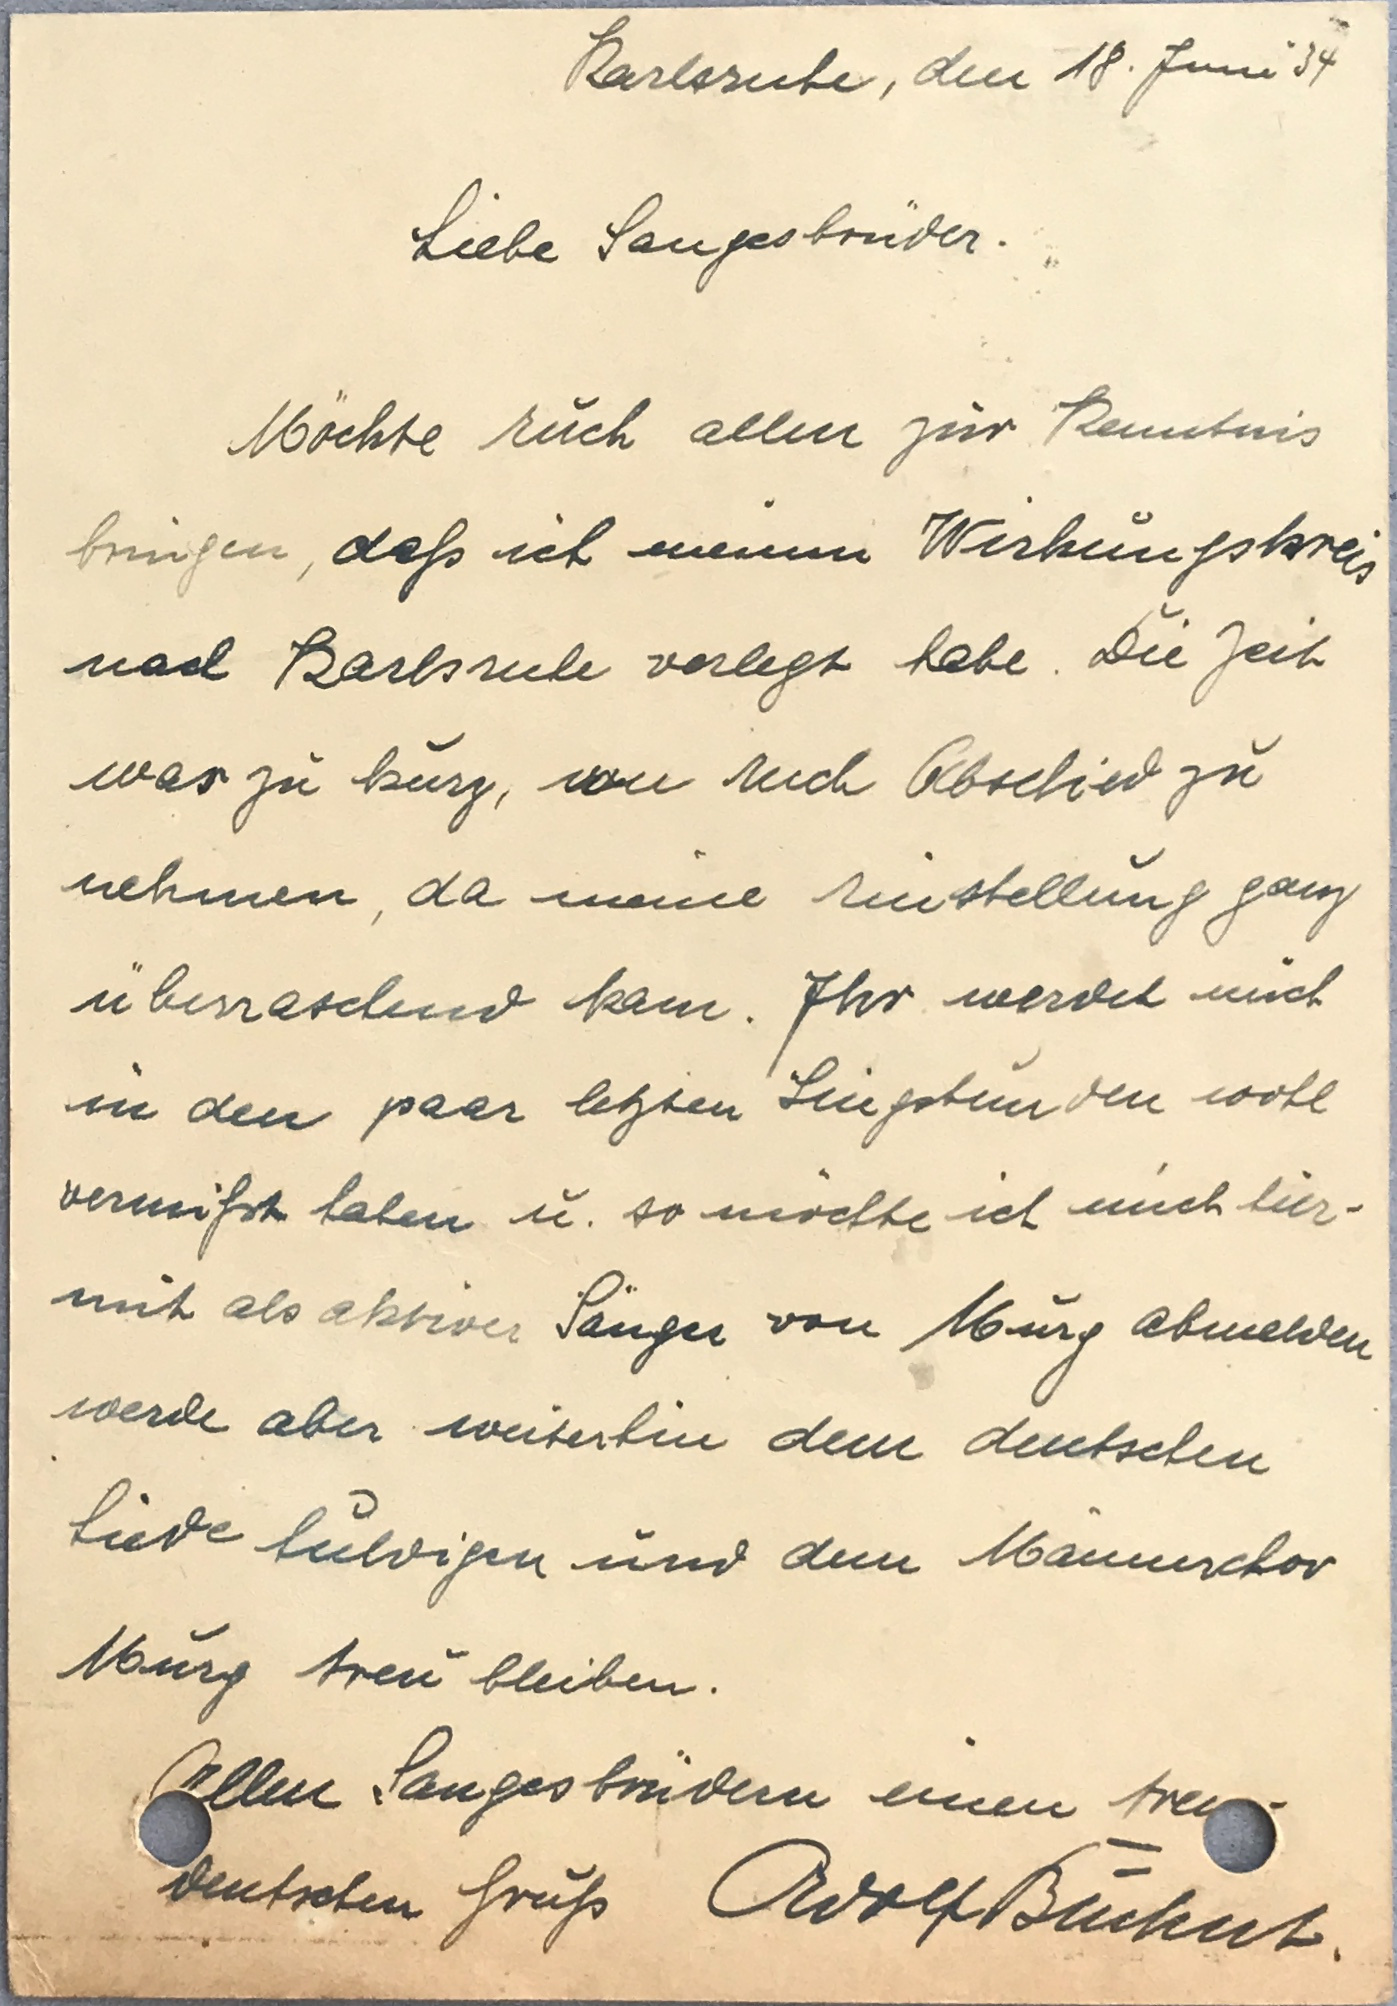 Karlsruhe, den 18. Juni 34
Liebe Sangesbrüder.
Möchte Euch allen zur Kenntnis
bringen, daß ich meinen Wirkungskreis
nach Karlsruhe verlegt habe. Die Zeit
war zu kurz, von Euch Abschied zu
nehmen, da meine Einstellung ganz
überraschend kam. Ihr werdet mich
in den paar letzten Singstunden wohl
vermißt haben u. so möchte ich mich hier-
mit als aktiver Sänger von Murg abmelden
werde aber weiterhin dem deutschen
Liede huldigen und dem Männerchor
Murg treu bleiben.
Allen Sangesbrüdern einen treu-
deutschen Gruß Adolf